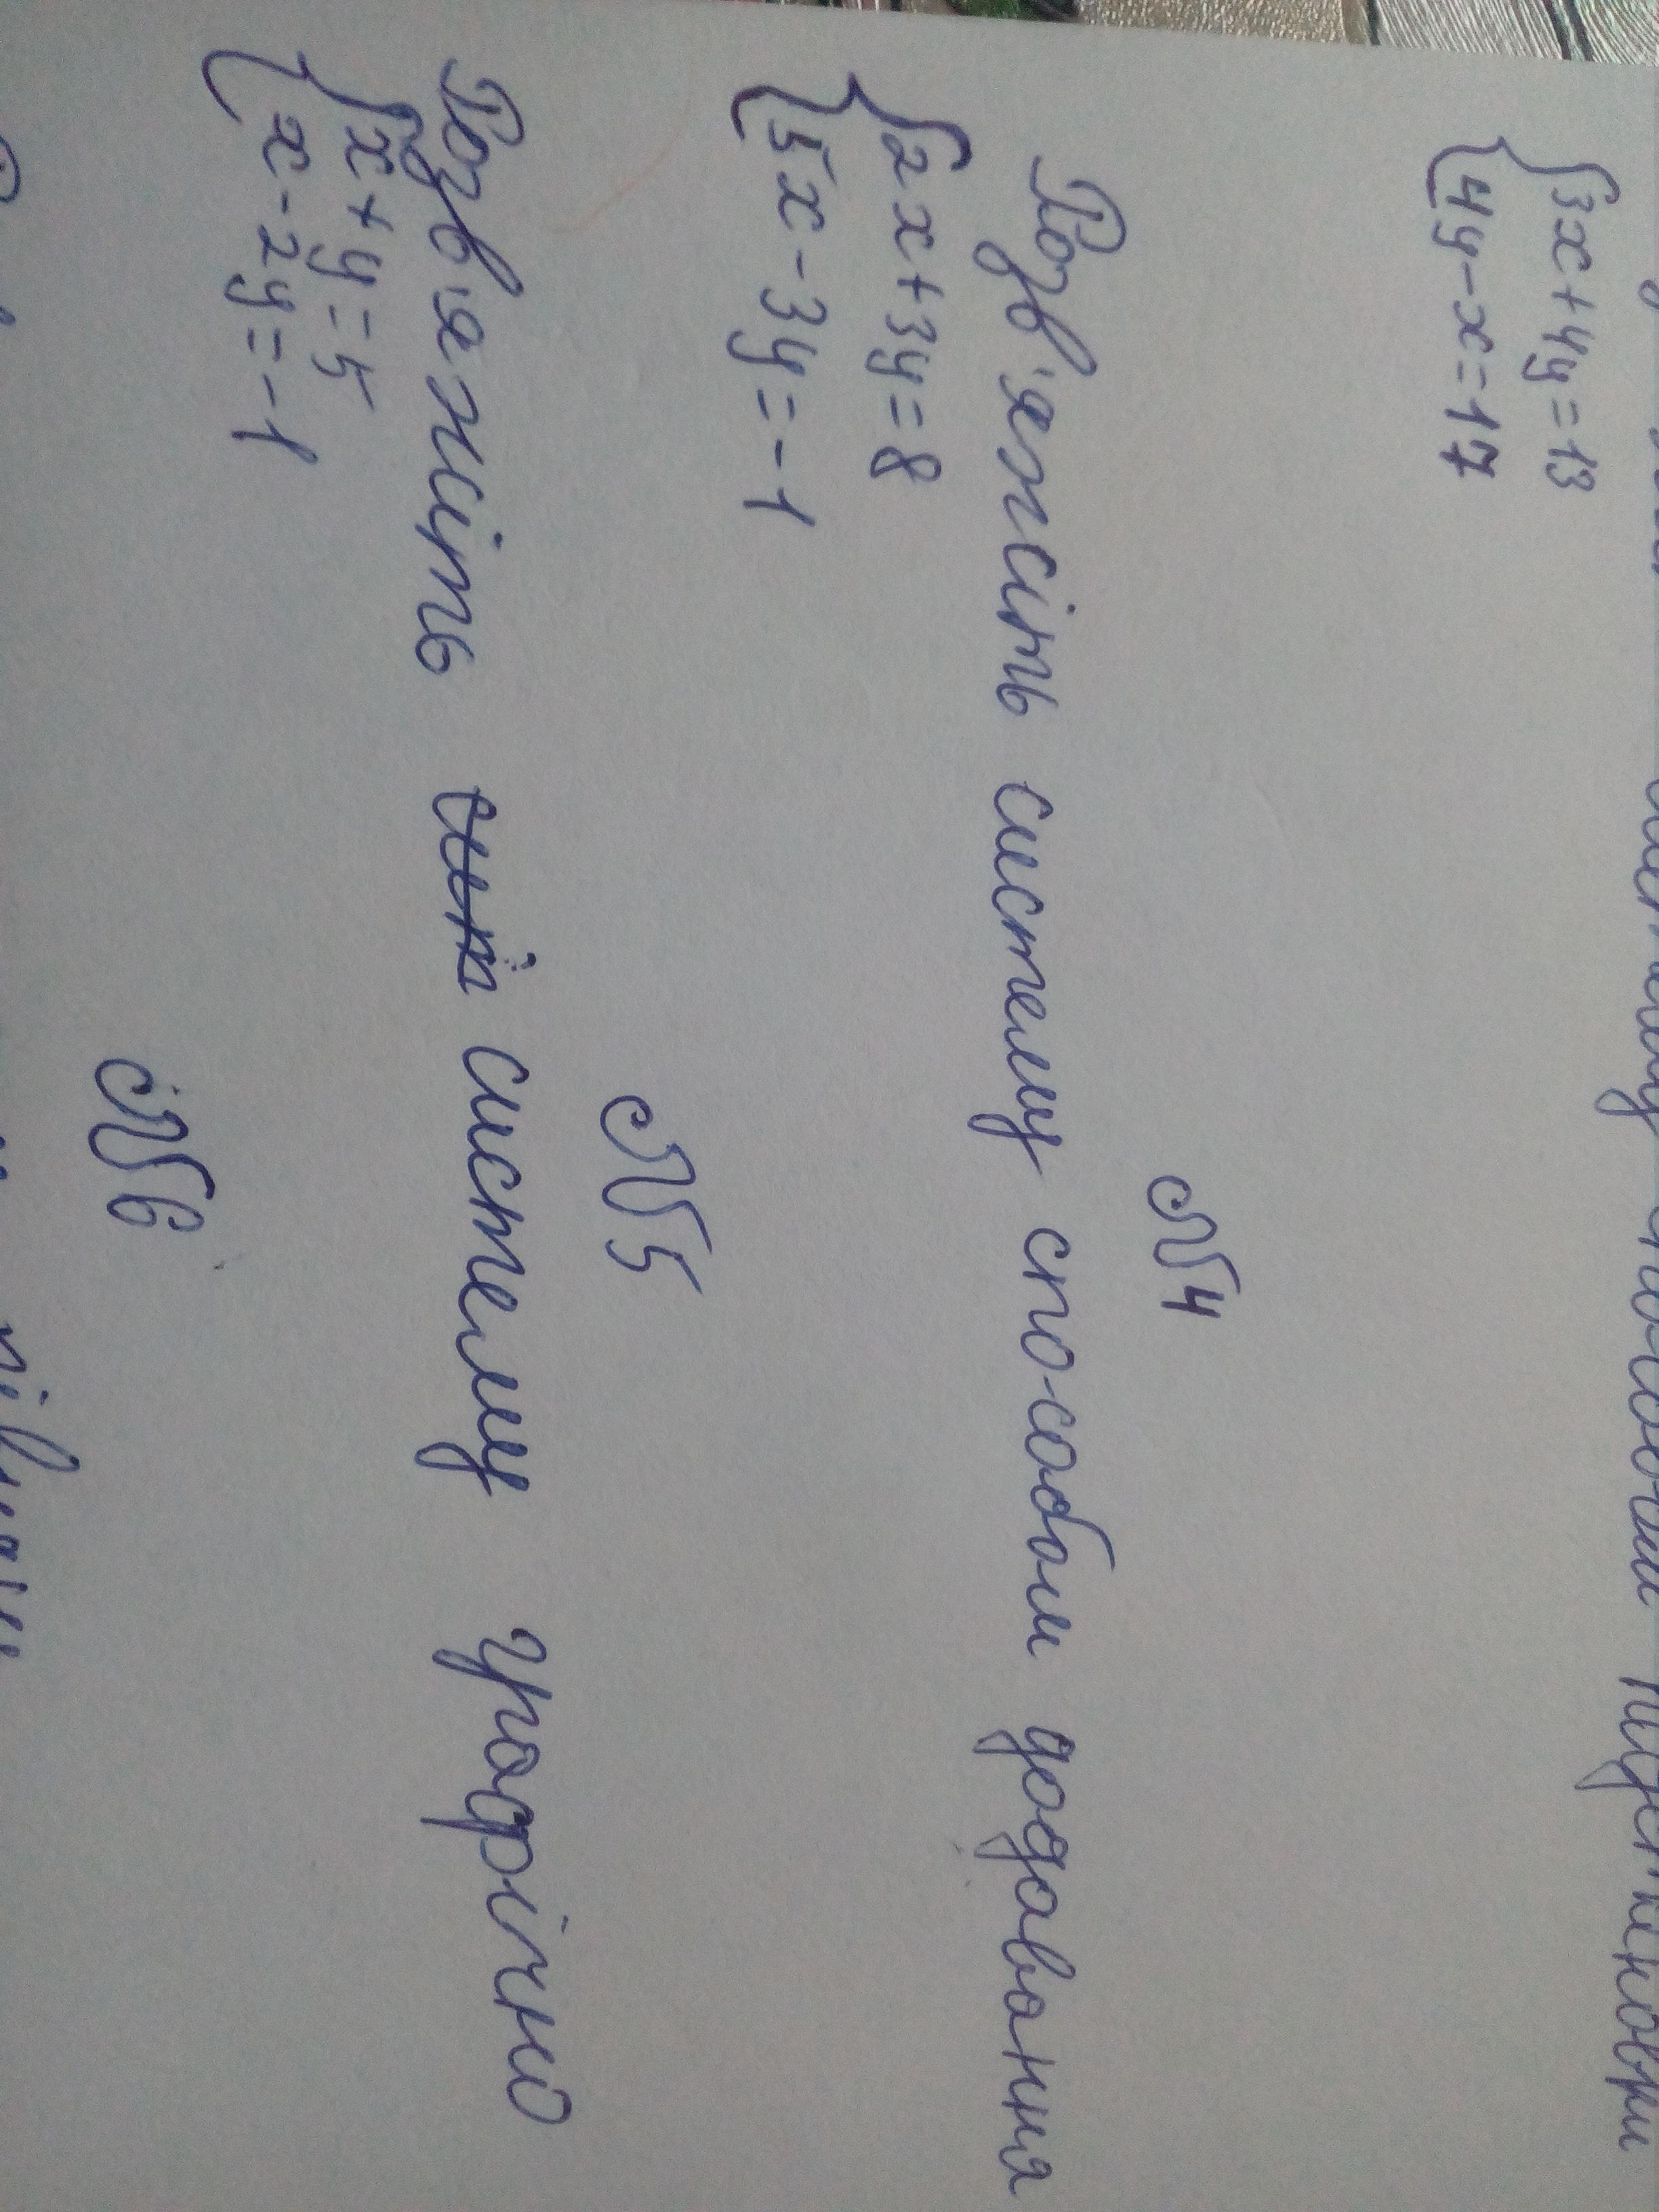 систему способом підстановки
{3x+4y=13
4y-x=17
№4
Розв'яжіть систему способом додавання
{2x+3y=8
5x-3y=-1
№5
Розв'яжіть систему графічно
{x+y=5
x-2y=-1
№6